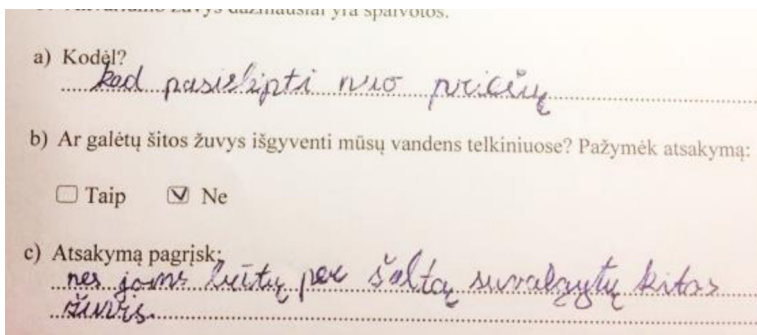 žuvys dažniausiai yra spalvotos.
a) Kodėl?
kad pasislėpti nuo priešų
b) Ar galėtų šitos žuvys išgyventi mūsų vandens telkiniuose? Pažymėk atsakymą:
Taip Ne
c) Atsakymą pagrįsk:
nes joms būtų per šaltą suvalgytų kitos
žuvis.